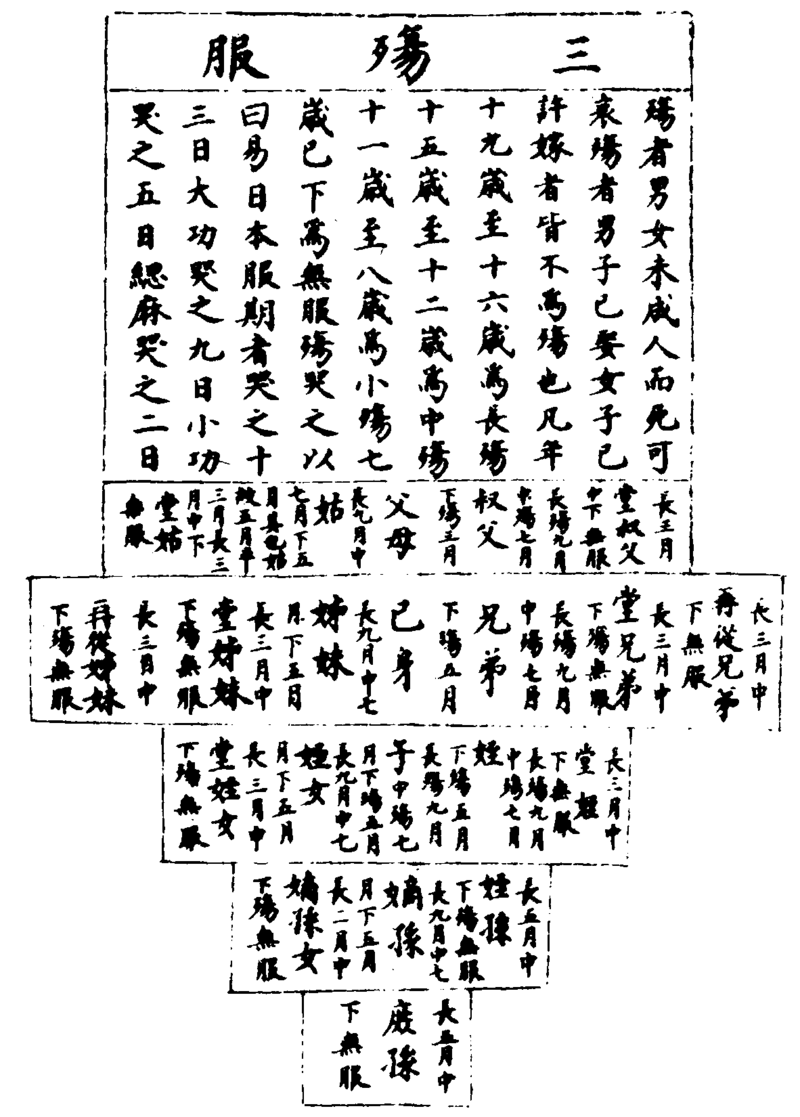 三殤服
殤者男女未成人而死可
哀殤者男子已娶女子已
許嫁者皆不為殤也凡年
十九歲至十六歲為長殤
十五歲至十二歲為中殤
十一歲至八歲為小殤七
歲已下為無服殤哭之以
日易日本服期者哭之十
三日大功哭之九日小功
哭之五日緦麻哭之二日
長三月
堂叔父
中下無服
長殤九月
中殤七月
叔父
下殤三月
父母
長九月中
姑
七月下五
月其他姑
故五月卒
三月長三
月中下
堂姑
無服
長三月中
再從兄弟
下無服
長三月中
堂兄弟
下殤無服
長殤九月
中殤七月
兄弟
下殤五月
己身
長九月中七
姊妹
月下五月
長三月中
堂姊妹
下殤無服
長三月中
再從姊妹
下殤無服
長三月中
堂姪
下無服
長殤九月
中殤七月
姪
下殤五月
長殤九月
子中殤七
月下殤五月
長九月中七
姪女
月下五月
長三月中
堂姪女
下殤無服
長五月中
姪孫
下殤無服
長九月中七
嫡孫
月下五月
長二月中
嫡孫女
下殤無服
長五月中
庶孫
下無服